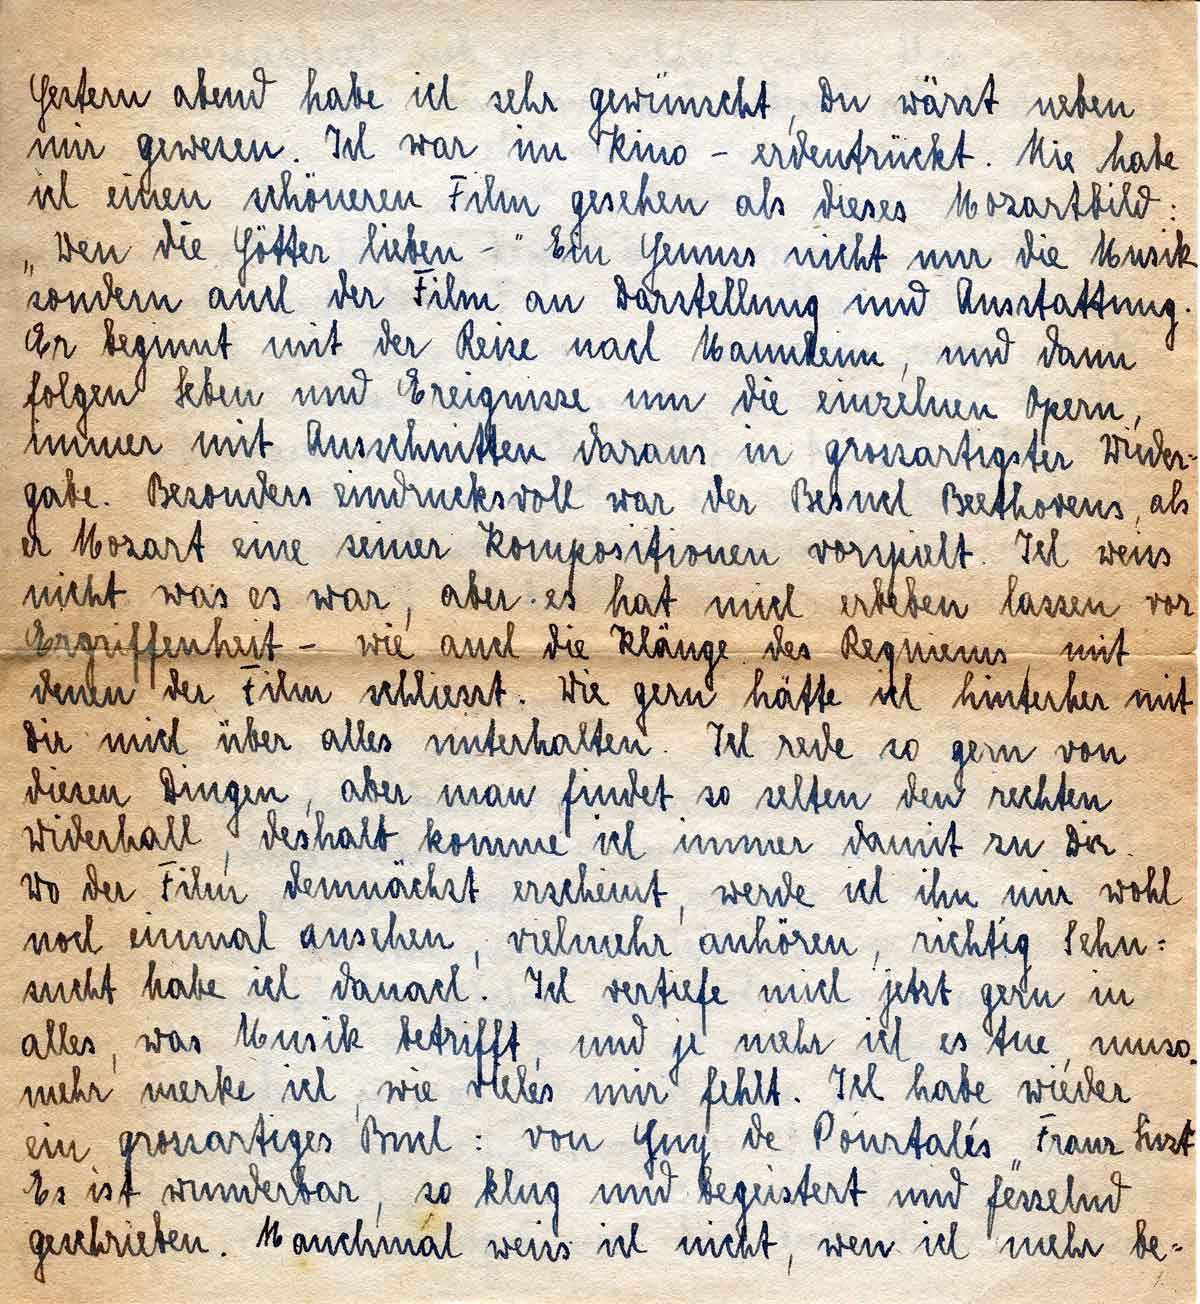 Gestern abend habe ich sehr gewünscht, Du wärst neben
mir gewesen. Ich war im Kino - erdentrückt. Nie habe
ich einen schöneren Film gesehen als dieses Mozartbild:
„Wen die Götter lieben -" Ein Genuss nicht nur die Musik
sondern auch der Film an Darstellung und Ausstattung.
Er beginnt mit der Reise nach Mannheim, und dann
folgen Leben und Ereignisse um die einzelnen Opern,
immer mit Ausschnitten daraus in grossartigster Wieder=
gabe. Besonders eindrucksvoll war der Besuch Beethovens, als
er Mozart eine seiner Kompositionen vorspielt. Ich weiss
nicht was es war, aber es hat mich erbeben lassen vor
Ergriffenheit - wie auch die Klänge des Requiems, mit
denen der Film schliesst. Wie gern hätte ich hinterher mit
Dir mich über alles unterhalten. Ich rede so gern von
diesen Dingen, aber man findet so selten den rechten
Widerhall, deshalb komme ich immer damit zu Dir.
Wo der Film demnächst erscheint, werde ich ihn mir wohl
noch einmal ansehen, vielmehr anhören, richtig Sehn=
sucht habe ich danach. Ich vertiefe mich jetzt gern in
alles, was Musik betrifft, und je mehr ich es tue, umso
mehr merke ich, wie vieles mir fehlt. Ich habe wieder
ein grossartiges Buch: von Guy de Pourtalés „Franz Liszt
Es ist wunderbar, so klug und begeistert und fesselnd
geschrieben. Manchmal weiss ich nicht, wen ich mehr be=